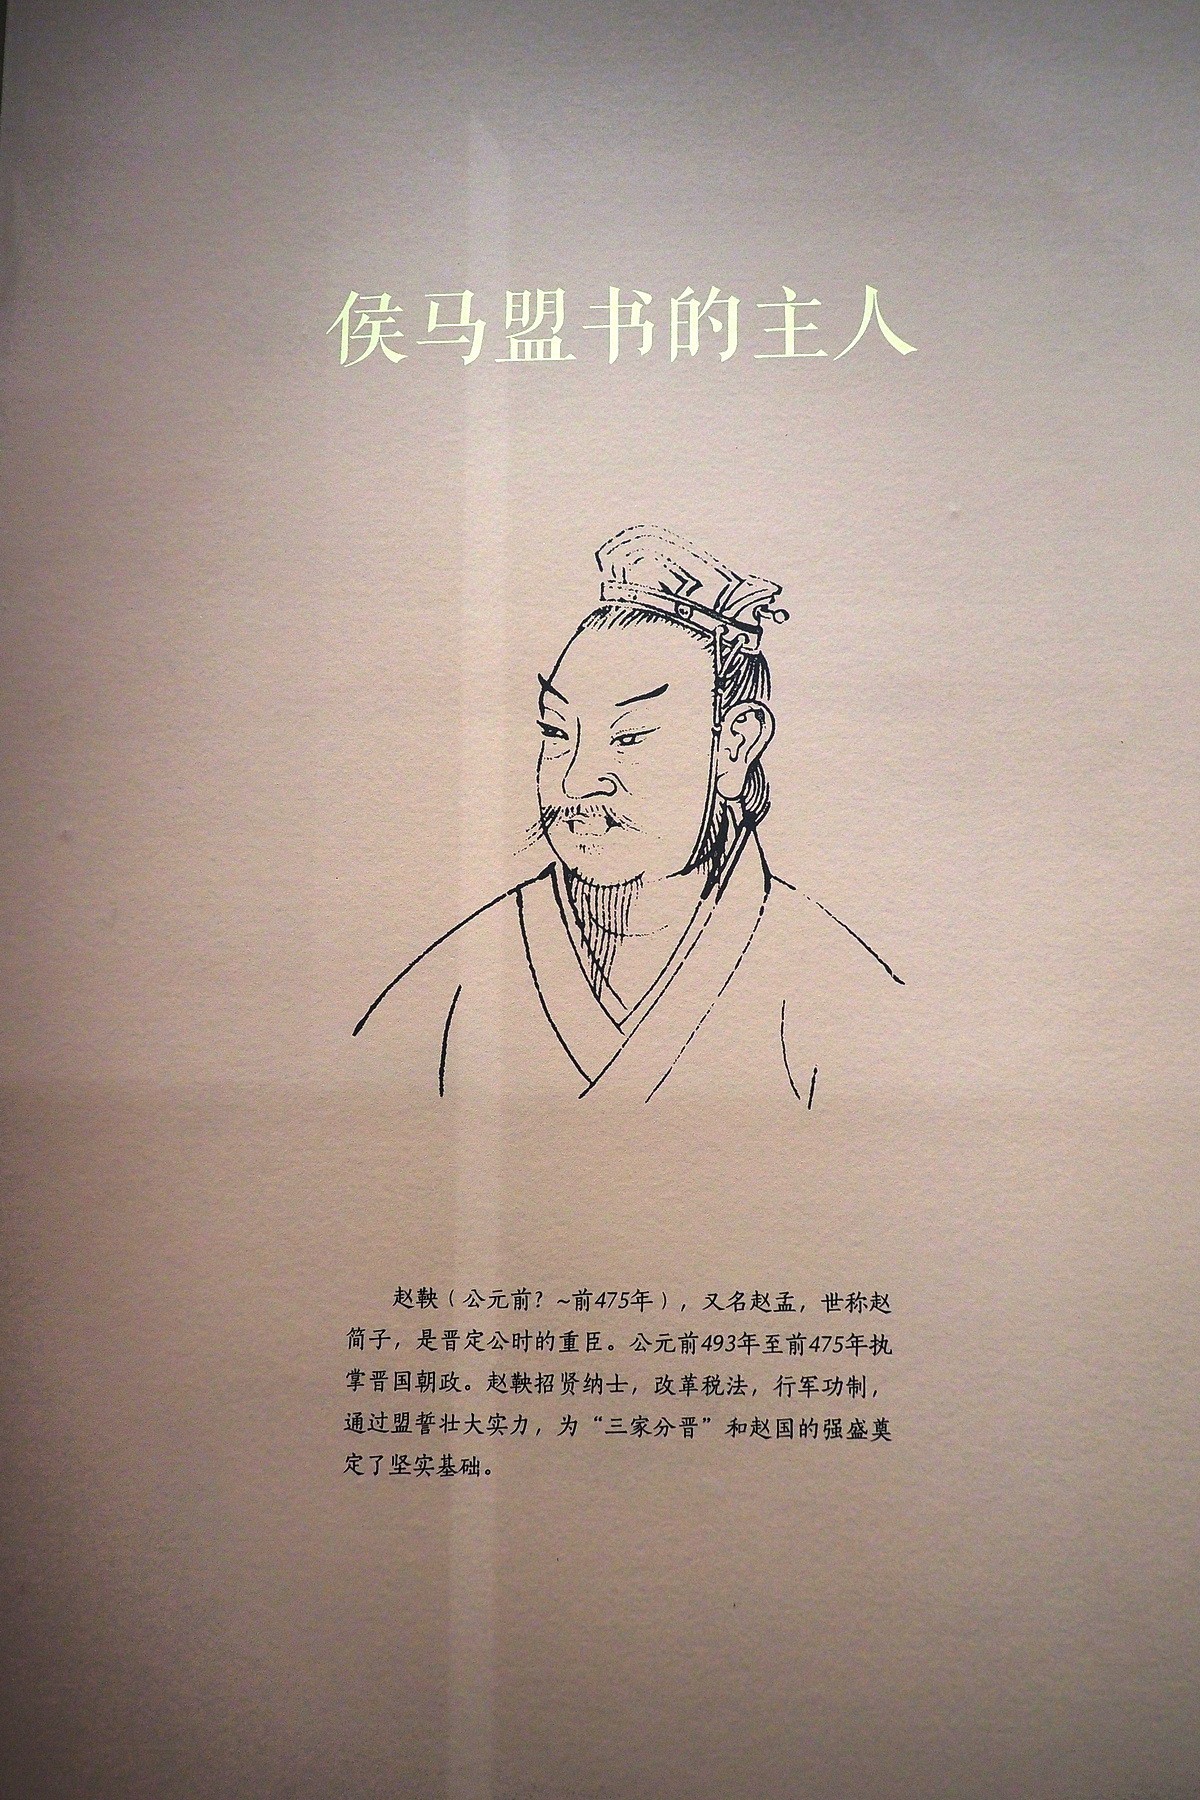 侯马盟书的主人
赵鞅（公元前？~前475年），又名赵孟，世称赵
简子，是晋定公时的重臣。公元前493年至前475年执
掌晋国朝政。赵鞅招贤纳士，改革税法，行军功制，
通过盟誓壮大实力，为“三家分晋”和赵国的强盛奠
定了坚实基础。